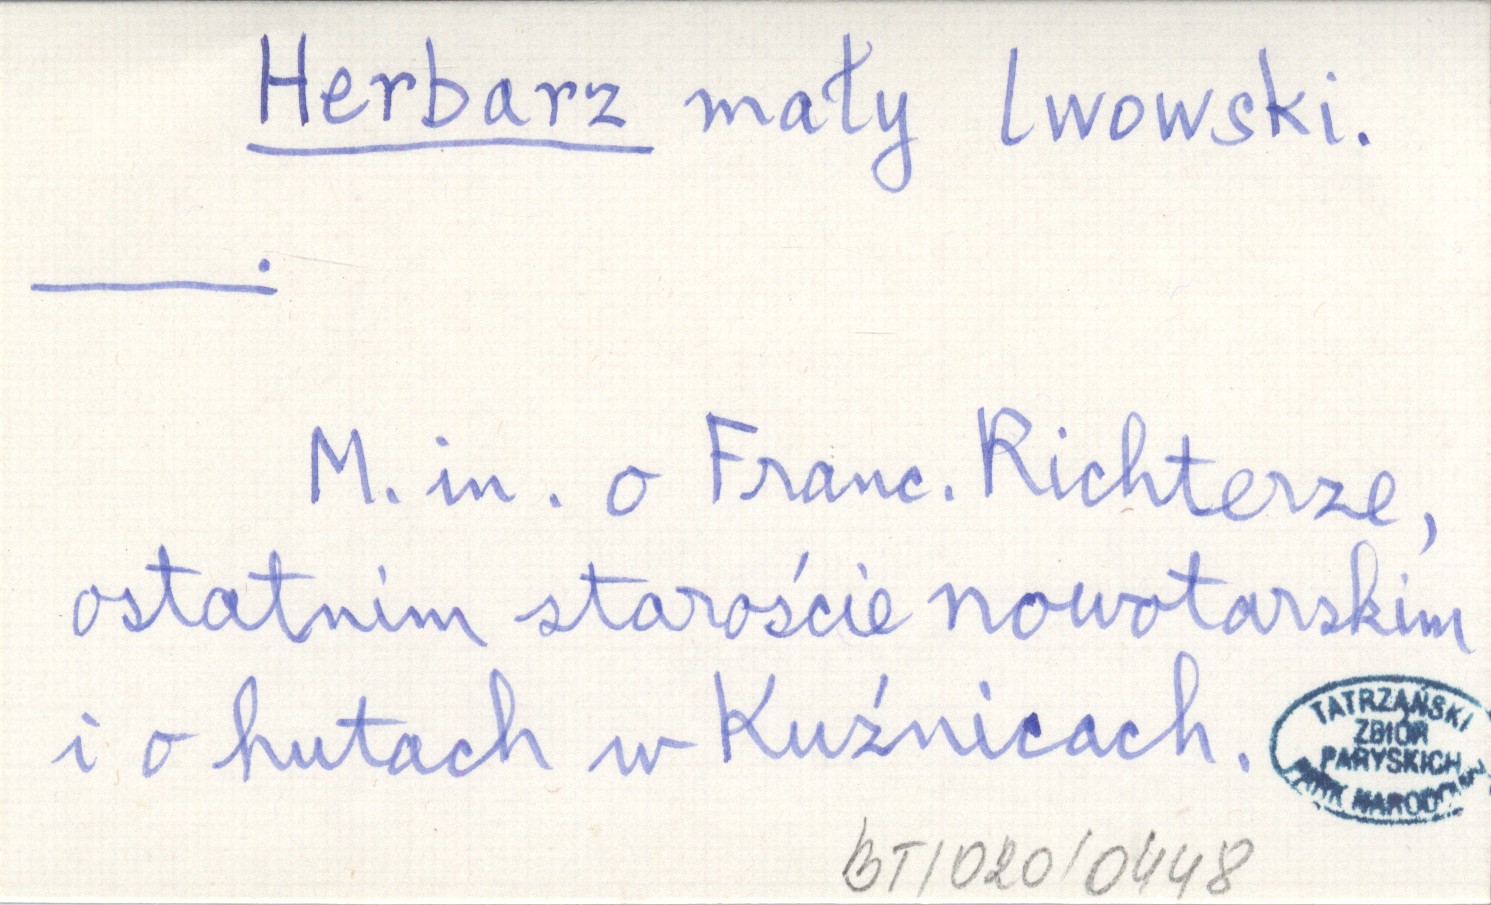 Herbarz mały lwowski.
.
M. in. o Franc. Richterze,
ostatnim staroście nowotarskim
i o hutach w Kuźnicach.
TATRZAŃSKI
ZBIÓR
PARYSKICH
PARK NARODOWY
BT/020/0448